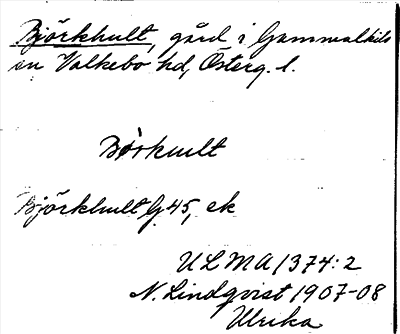 Björkhult, gård i Gammalkils
sn Valkebo hd, Österg. l.
Börkult
Björkhult G 45, ek
ULMA 1374:2
N. Lindqvist 1907-08
Ulrika